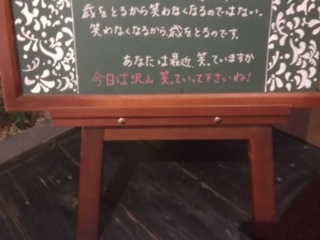 歳をとるから笑わなくなるのではない。
笑わなくなるから歳をとるのです。
あなたは最近 笑っていますか
今日は沢山 笑っていって下さいね!